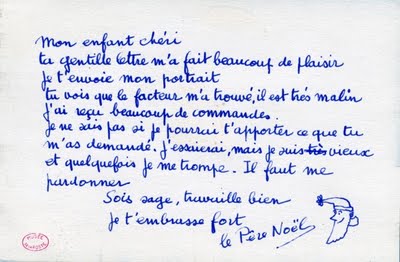 Mon enfant chéri
ta gentille lettre m'a fait beaucoup de plaisir
Je t'envoie mon portrait
tu vois que le facteur m'a trouvé, il est très malin
J'ai reçu beaucoup de commandes.
je ne sais pas si je pourrai t'apporter ce que tu
m'as demandé. J'essaierai, mais je suis très vieux
et quelquefois je me trompe. Il faut me
pardonner
Sois sage, travaille bien
Je t'embrasse fort
le Père Noël
MUSÉE